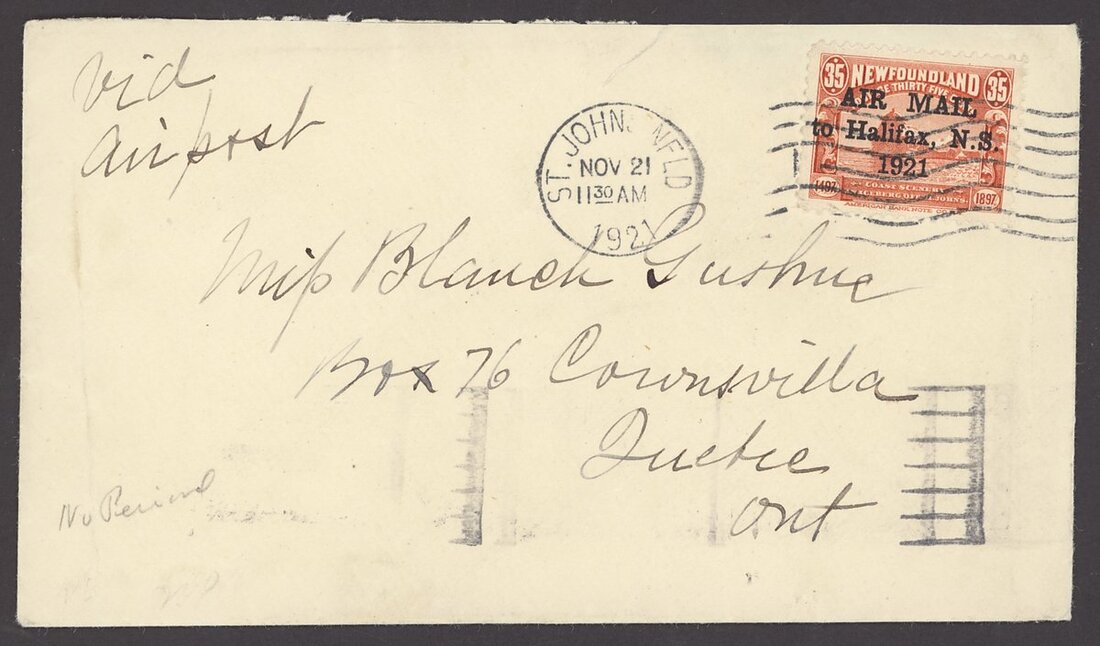 Vid
Airpost
35 NEWFOUNDLAND 35
AIR MAIL
to Halifax, N.S.
1921
1497 COAST SCENERY 1897
ICEBERG OFF ST. JOHN'S.
AMERICAN BANK NOTE CO.
ST. JOHNS NFLD
NOV 21
11 30 AM
1921
Miss Blanch Gushue
Box 76 Cownsvilla
Quebec
Ont
No Period